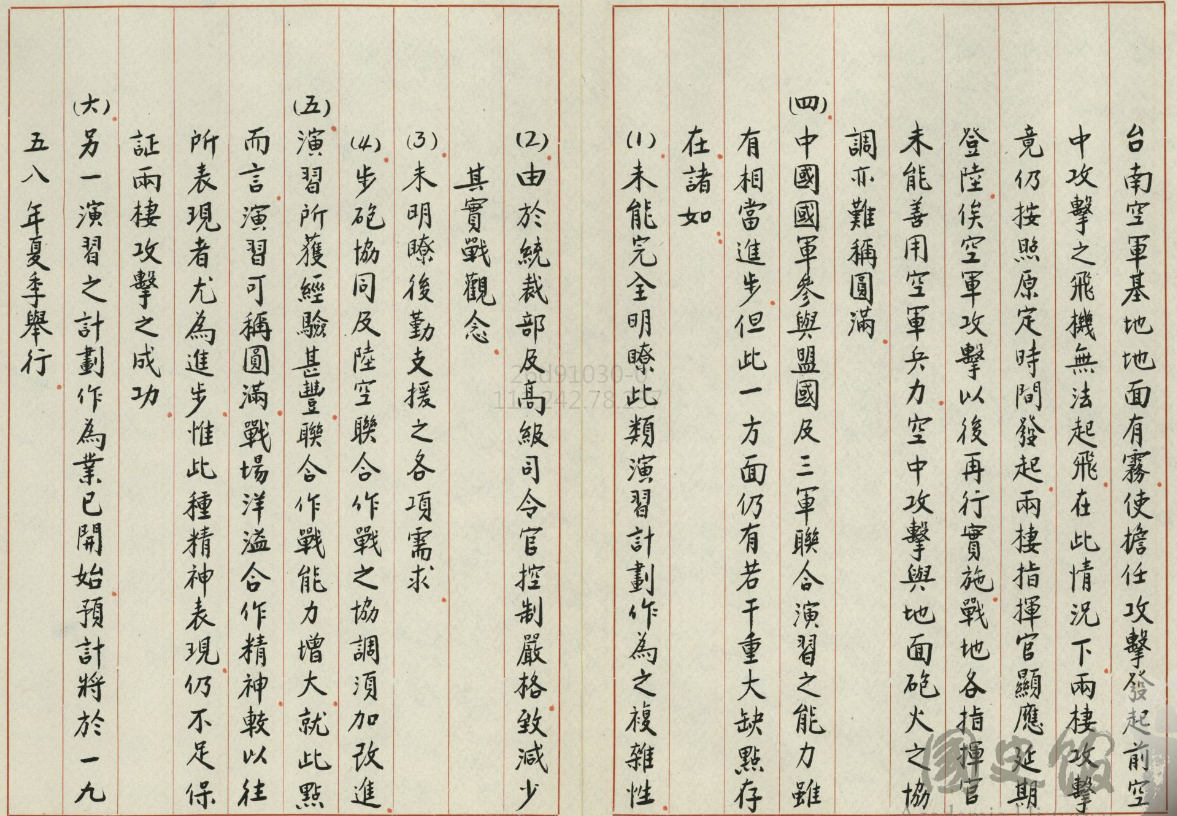 台南空軍基地地面有霧使擔任攻擊發起前空
中攻擊之飛機無法起飛在此情況下兩棲攻擊
竟仍按照原定時間發起兩棲指揮官顯應延期
登陸俟空軍攻擊以後再行實施戰地各指揮官
未能善用空軍兵力空中攻擊與地面砲火之協
調亦難稱圓滿
(四)中國國軍參與盟國及三軍聯合演習之能力雖
有相當進步但此一方面仍有若干重大缺點存
在諸如
(1)未能完全明瞭此類演習計劃作為之複雜性
(2)由於統裁部及高級司令官控制嚴格致減少
其實戰觀念
(3)未明瞭後勤支援之各項需求
(4)步砲協同及陸空聯合作戰之協調須加改進
(五)演習所獲經驗甚豐聯合作戰能力增大就此點
而言演習可稱圓滿戰場洋溢合作精神較以往
所表現者尤為進步惟此種精神表現仍不足保
証兩棲攻擊之成功
(六)另一演習之計劃作為業已開始預計將於一九
五八年夏季舉行
國史館